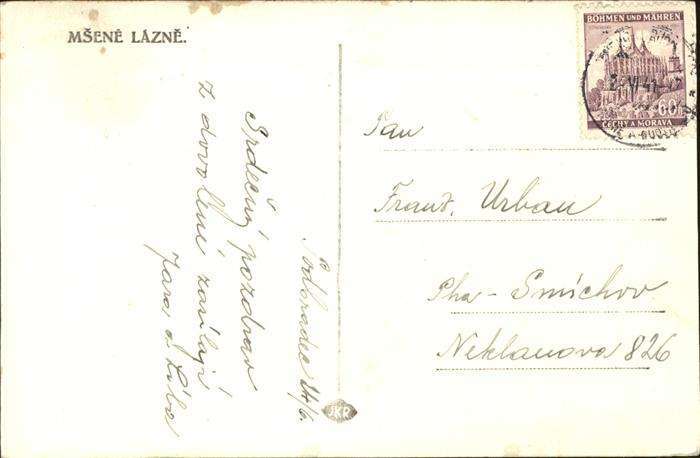 MŠENÉ LÁZNĚ.
Srdečný pozdrav
z dovolené zasílají
Jara a Liba
24/6.
JKR
BÖHMEN UND MÄHREN
60
ČECHY A MORAVA
Pan
Frant. Urban
Pha - Smíchov
Neklanova 826